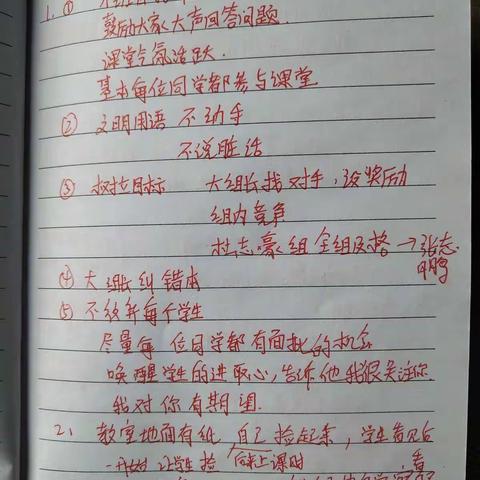 1. ①
鼓励大家大声回答问题.
课堂气氛活跃.
基本每位同学都参与课堂
② 文明用语 不动手
不说脏话
③ 树立目标 大组长找对手,设奖励
组内竞争
杜志豪组 全组及格→张志
鹏
④ 大组长纠错本
⑤ 不放弃每个学生
尽量每一位同学都有面批的机会
唤醒学生的进取心,告诉他我很关注你.
我对你有期望.
2、教室地面有纸,自己捡起来,学生看见后
一开始让学生捡 后来上课时
看